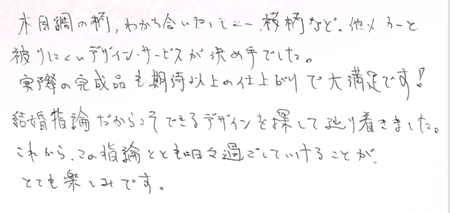 木目調の柄、わかち合いセレモニー、模様など、他メーカーと
被りにくいデザイン・サービスが決め手でした。
実際の完成品も期待以上の仕上がりで大満足です！
結婚指論だからこそできるデザインを探して辿り着きました。
これから、この指論とともに日々過ごしていけることが、
とても楽しみです。